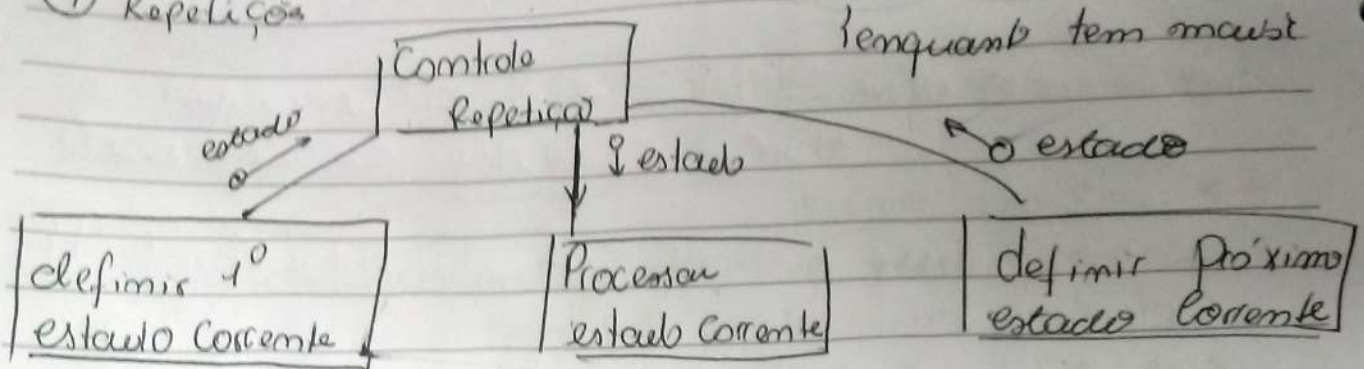 1 Repetição
Controle
Repetição
enquanto tem mais
estado
estado
estado
definir 1º
estado corrente
Processar
estado corrente
definir próximo
estado corrente